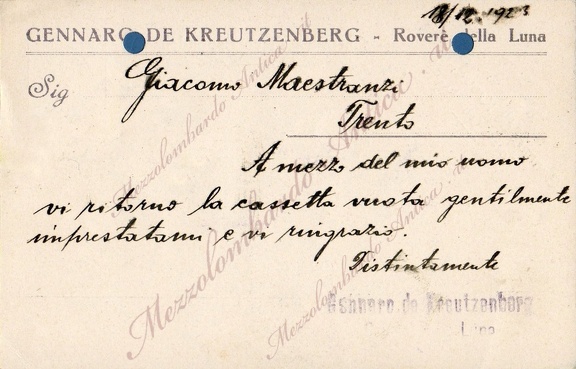 18/12. 1923
GENNARO DE KREUTZENBERG - Roverè della Luna
Sig Giacomo Maestranzi
Trento
A mezzo del mio uomo
vi ritorno la cassetta vuota gentilmente
imprestatami e vi ringrazio.
Distintamente
Gennaro de Kreutzenberg
Luna
Mezzolombardo Antica . it
Mezzolombardo Antica . it
Mezzolombardo Antica